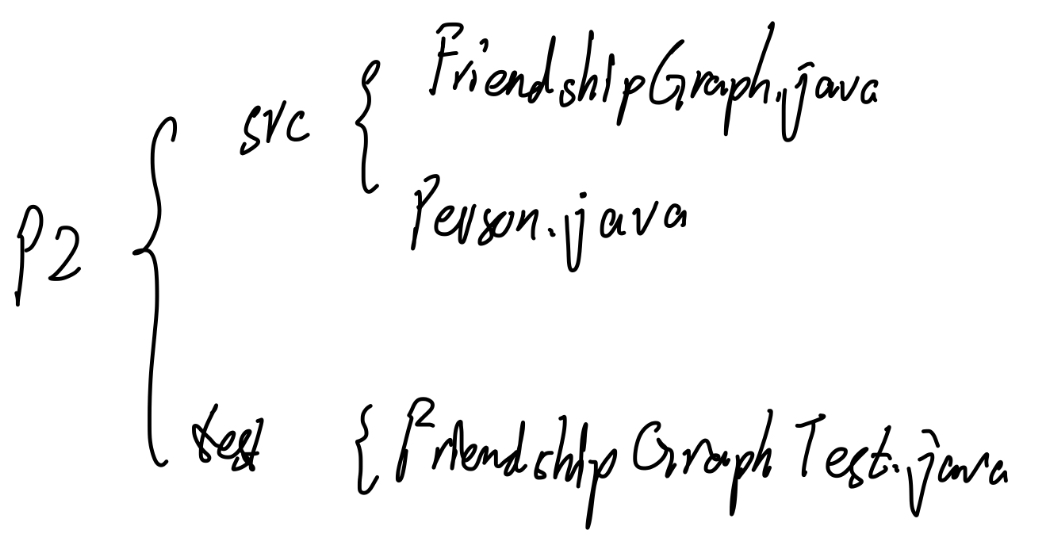 P2
src
FriendshipGraph.java
Person.java
test
FriendshipGraphTest.java